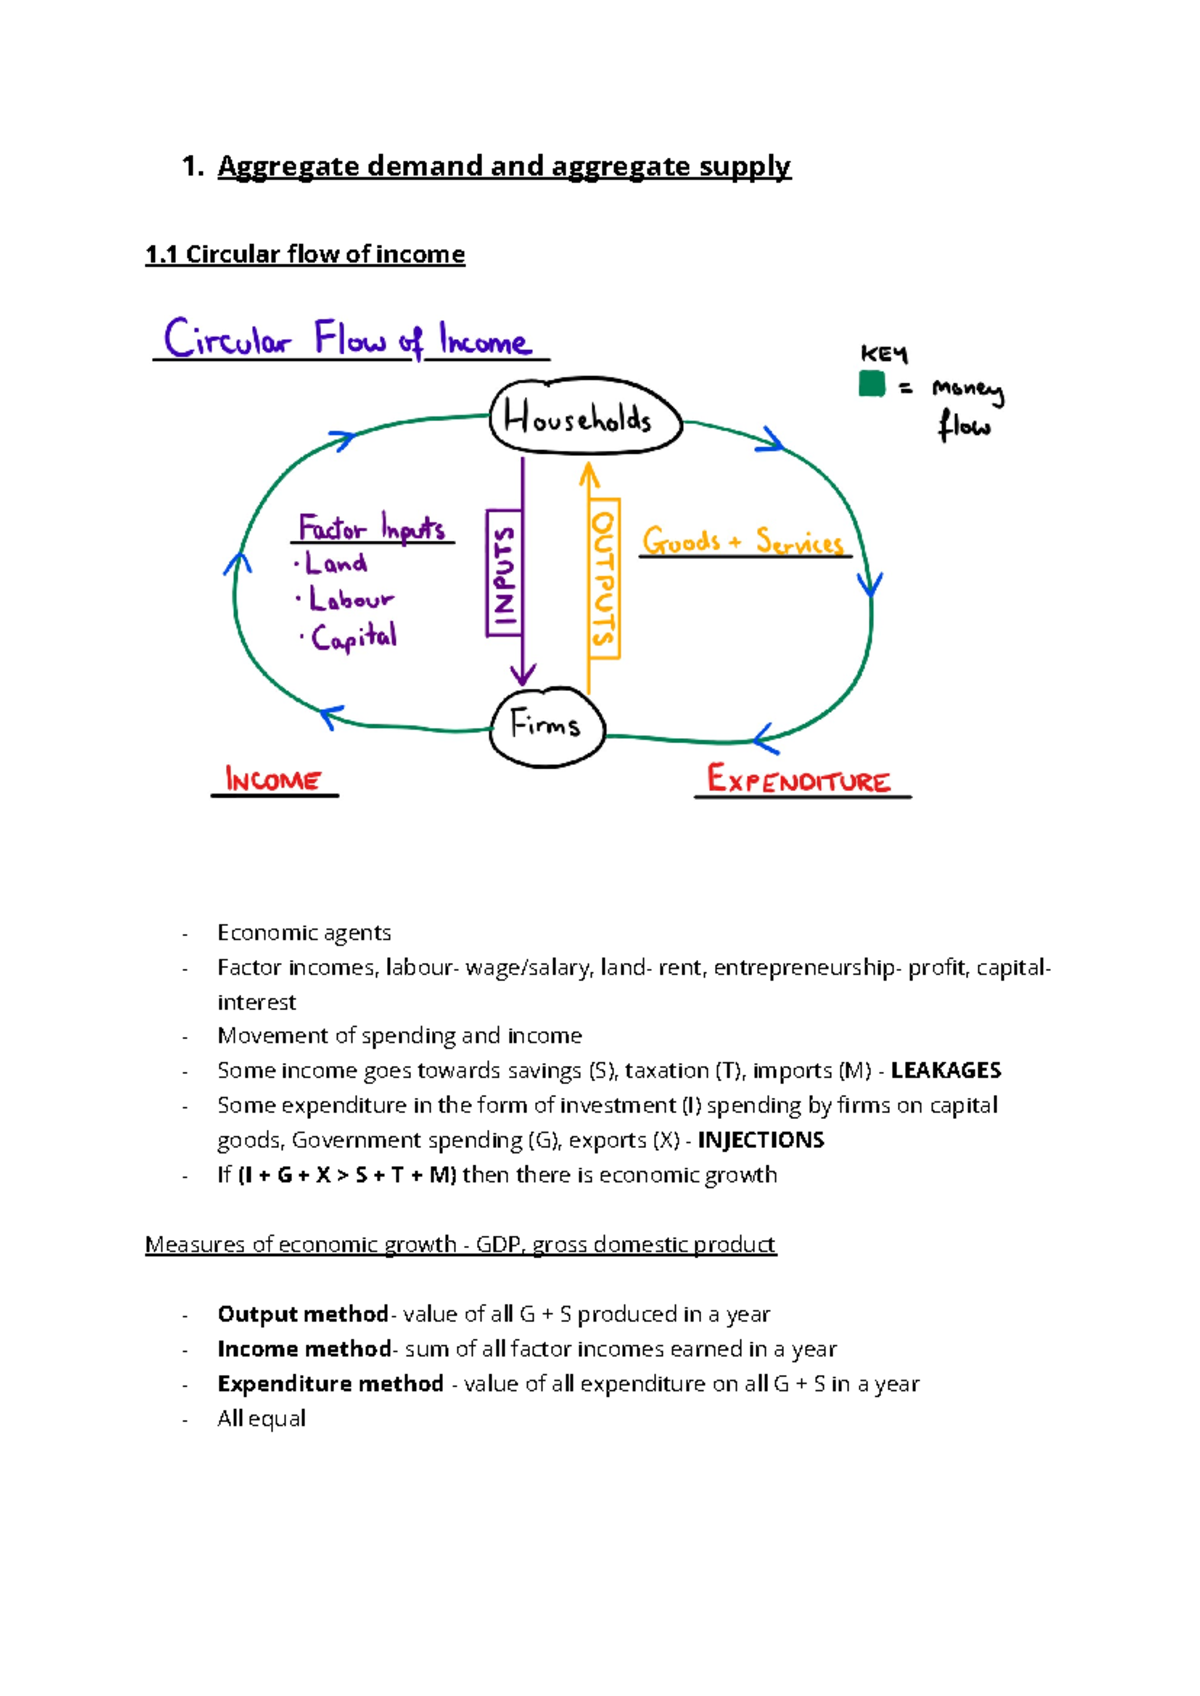 1. Aggregate demand and aggregate supply
1.1 Circular flow of income
Circular Flow of Income
KEY
= money
flow
Households
Factor Inputs
· Land
· Labour
· Capital
INPUTS
OUTPUTS
Goods + Services
Firms
INCOME
EXPENDITURE
- Economic agents
- Factor incomes, labour- wage/salary, land- rent, entrepreneurship- profit, capital-
interest
- Movement of spending and income
- Some income goes towards savings (S), taxation (T), imports (M) - LEAKAGES
- Some expenditure in the form of investment (I) spending by firms on capital
goods, Government spending (G), exports (X) - INJECTIONS
- If (I + G + X > S + T + M) then there is economic growth
Measures of economic growth - GDP, gross domestic product
- Output method- value of all G + S produced in a year
- Income method- sum of all factor incomes earned in a year
- Expenditure method - value of all expenditure on all G + S in a year
- All equal